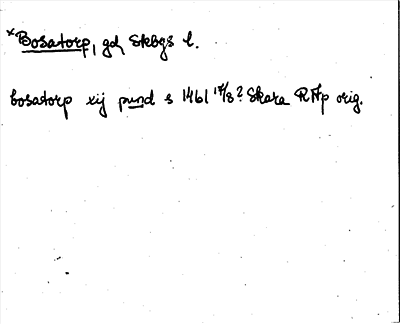 *Bosatorp, gd, Skbygs l.
bosatorp xij pund s 1461 17/8? Skara RAp orig.